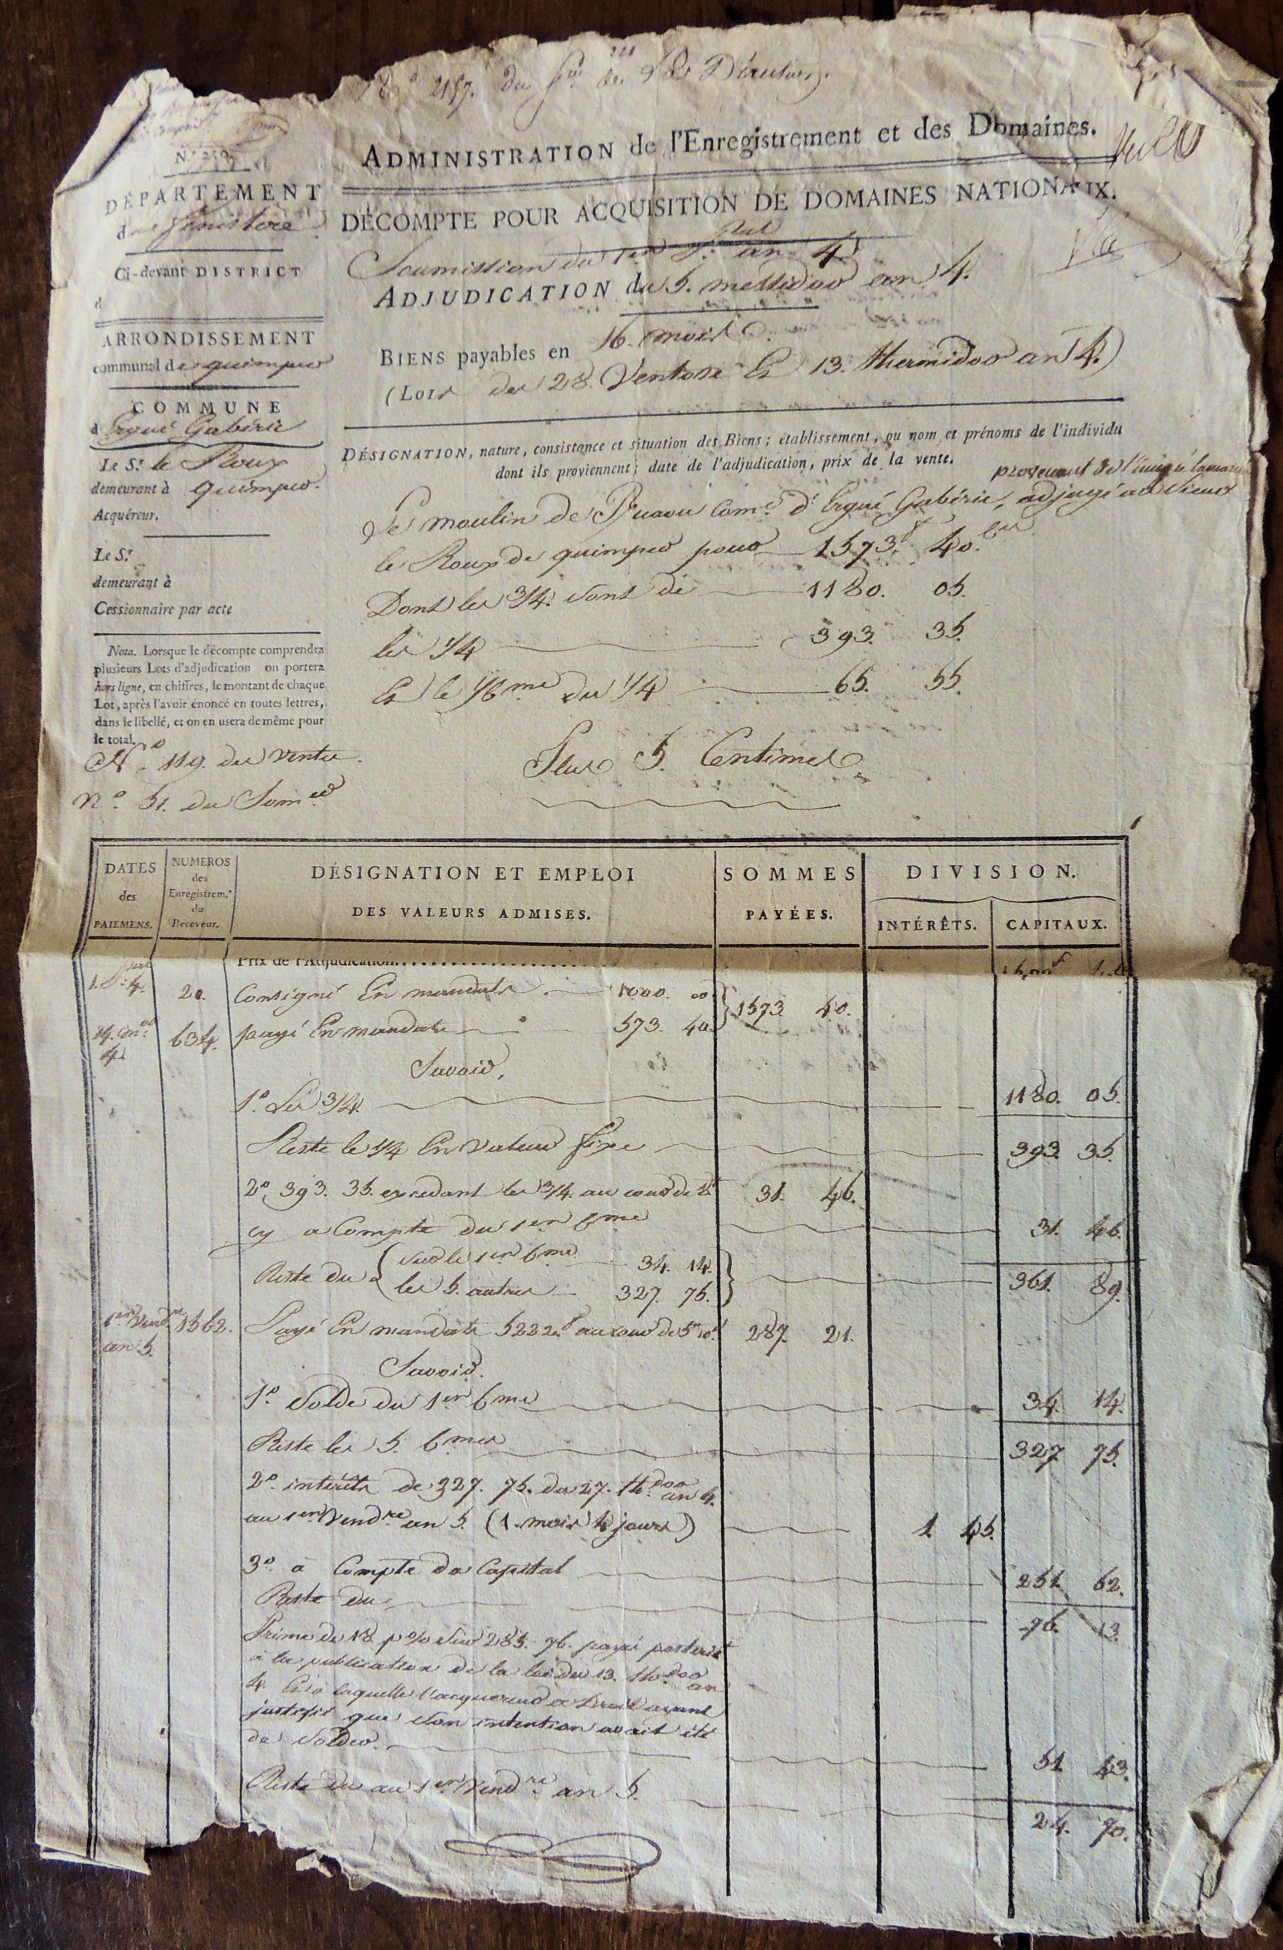 2157. du
ADMINISTRATION de l'Enregistrement et des Domaines.
DÉPARTEMENT
du finistère
Ci-devant DISTRICT
d
ARRONDISSEMENT
communal de quimper
COMMUNE
d'Ergué Gabéric
Le S.r le Roux
demeurant à quimper.
Acquéreur.
Le S.r
demeurant à
Cessionnaire par acte
Nota. Lorsque le décompte comprendra
plusieurs Lots d'adjudication on portera
hors ligne, en chiffres, le montant de chaque
Lot, après l'avoir énoncé en toutes lettres,
dans le libellé, et on en usera de même pour
le total.
N.o 119. des ventes.
n.o 51. du Som.er
DÉCOMPTE POUR ACQUISITION DE DOMAINES NATIONAUX.
Soumission du 1er an 4.
ADJUDICATION du 5. messidor an 4.
BIENS payables en 16 mois
(Lois des 28. Ventose Et 13. thermidor an 4.)
DÉSIGNATION, nature, consistance et situation des Biens; établissement, ou nom et prénoms de l'individu
dont ils proviennent; date de l'adjudication, prix de la vente.
provenant de l'émigré
Le moulin de com.e d'Ergué Gabéric, adjugé au Sieur
le Roux de quimper pour 1573.f 40.
Dont les 3/4. sont de 1180. 05.
les 1/4 393. 35.
Et le 1/6me du 1/4 65. 55.
Plus 5. Centimes
DATES des PAIEMENS.
NUMEROS des Enregistrem.s du Receveur.
DÉSIGNATION ET EMPLOI
DES VALEURS ADMISES.
SOMMES
PAYÉES.
DIVISION.
INTÉRÊTS. CAPITAUX.
Prix de l'Adjudication
20. Consigné En mandats 1000. 00
1573. 40.
4. 634. payé En mandats 573. 40.
Savoir,
1.o Les 3/4. 1180. 05.
Reste le 1/4 En valeur fixe 393. 35.
2.o 393. 35. excedant les 3/4. au cours de 31. 46.
cy a Compte du 1er 6me 31. 46.
Reste du sur le 1er 6me 34. 14.
les 5. autres 327. 75. 361. 89.
1er Vend.re an 5. 1562. Payé En mandats 5222.f au cours de 287. 21.
Savoir.
1.o solde du 1er 6me 34. 14.
Reste les 5. 6mes 327. 75.
2.o intérêts de 327. 75. du 27. th.dor an 4.
au 1er Vend.re an 5. (1. mois 4 jours) 1. 45.
3.o à Compte du Capital 251. 62.
Reste du 76. 13.
Prime de 18. p% sur 285. 76. payé posterieurt
à la publication de la loi du 13. th.dor an
4. Et à laquelle l'acquereur a droit ayant
justifié que son intention avait été
de solder. 51. 43.
Reste du au 1er Vend.re an 5. 24. 70.